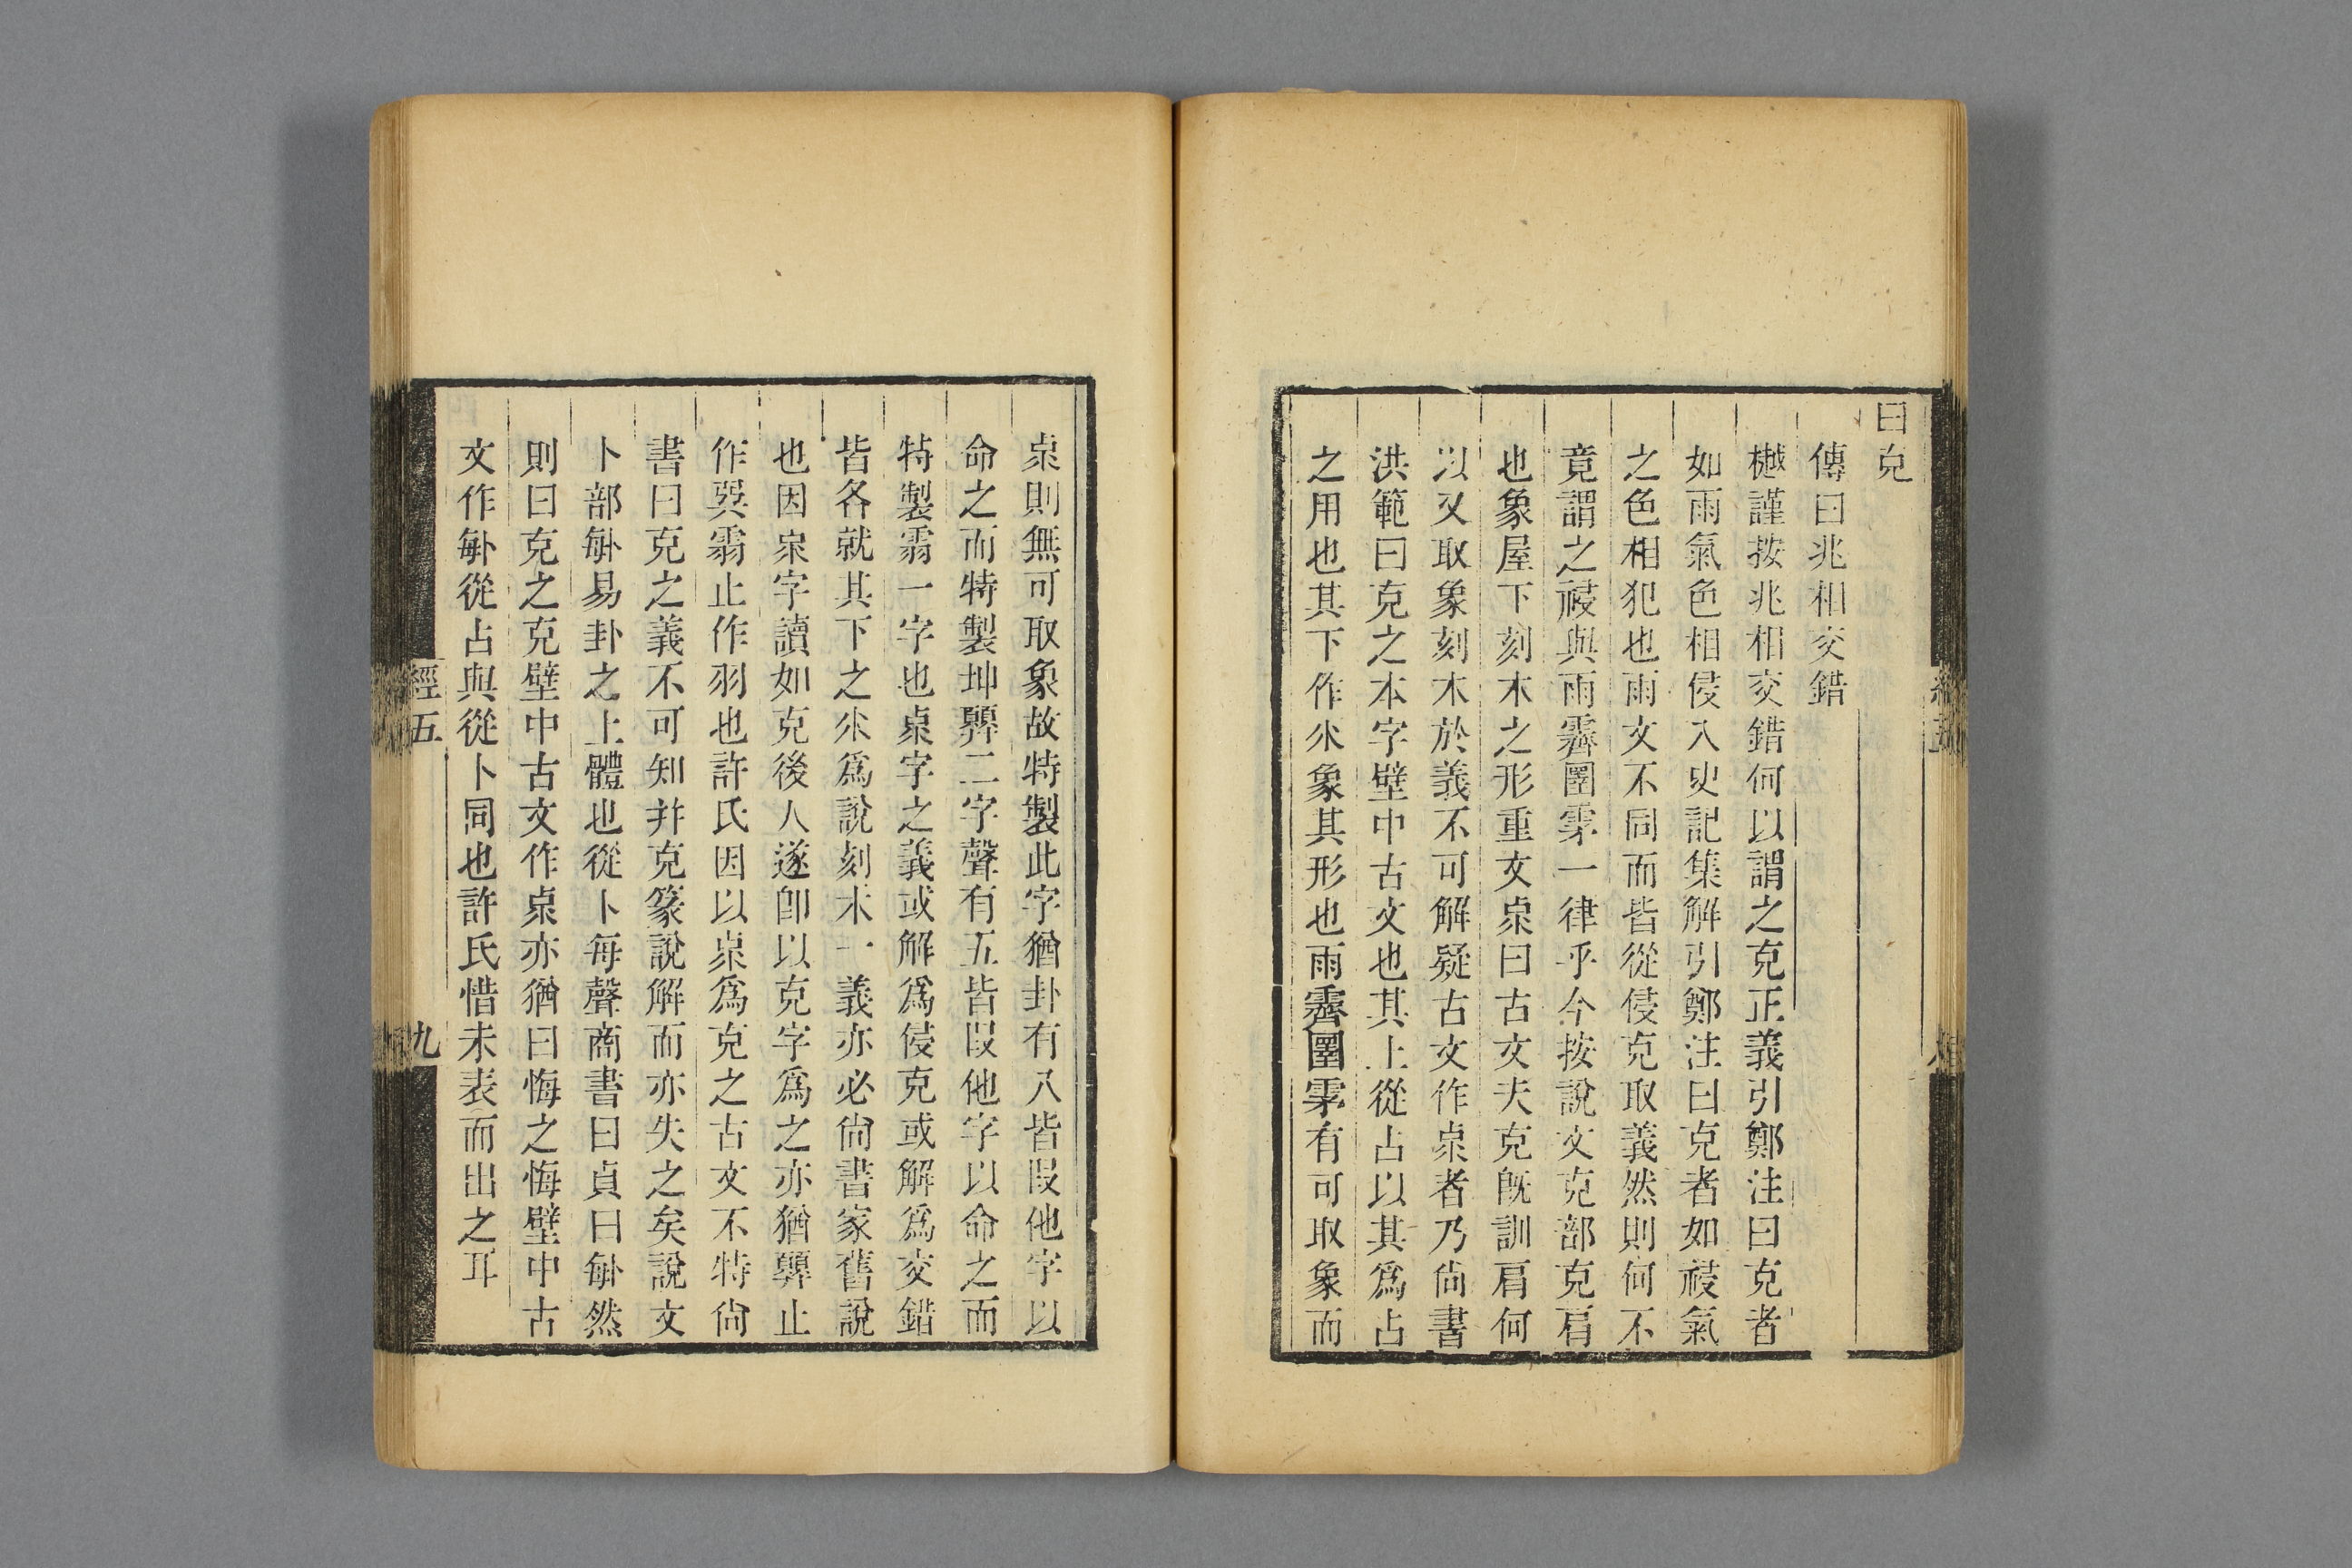 曰克
傳曰兆相交錯
樾謹按兆相交錯何以謂之克正義引鄭注曰克者
如雨氣色相侵入史記集解引鄭注曰克者如祲氣
之色相犯也兩文不同而皆從侵克取義然則何不
竟謂之祲與雨霽圛雺一律乎今按說文克部克肩
也象屋下刻木之形重文㝁曰古文夫克旣訓肩何
以又取象刻木於義不可解疑古文作㝁者乃尙書
洪範曰克之本字壁中古文也其上從占以其爲占
之用也其下作㣺象其形也雨霽圛雺有可取象而
㝁則無可取象故特製此字猶卦有八皆叚他字以
命之而特製坤㢲二字聲有五皆叚他字以命之而
特製䨒一字也㝁字之義或解爲侵克或解爲交錯
皆各就其下之㣺爲說刻木一義亦必尙書家舊說
也因㝁字讀如克後人遂卽以克字爲之亦猶㢲止
作巽䨒止作羽也許氏因以㝁爲克之古文不特尙
書曰克之義不可知幷克篆說解而亦失之矣說文
卜部𠧩易卦之上體也從卜每聲商書曰貞曰𠧩然
則曰克之克壁中古文作㝁亦猶曰悔之悔壁中古
文作𠧩從占與從卜同也許氏惜未表而出之耳
經五
九